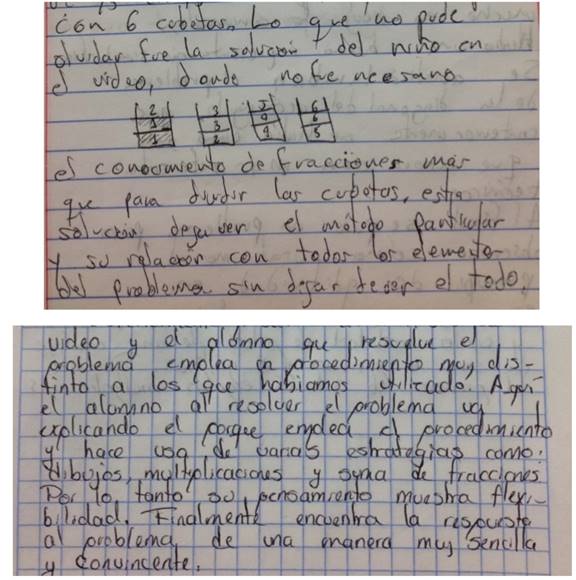 con 6 cubetas. Lo que no pude
olvidar fue la solución del niño en
el video, donde no fue ncesario
2 3 3 6
3 6
3 2 5
el conocimiento de fracciones más
que para dividir las cubetas, esta
solución deja ver el método particular
y su relación con todos los elemento
del problema sin dejar de ver el todo.
video y el alomno que resuelve el
problema emplea un procedimiento muy dis-
tinto a los que habiamos utilicado. Aqui
el alumno al resolver el problema va
explicando el porque emplea el procedimiento
y hace uso de varias estrategias como:
dibujos, multiplicaciones y suma de fracciones
Por lo tanto su pensamiento muestra flexi-
bilidad. Finalmente encuentra la respuesta
al problema de una manera muy sencilla
y convincente.